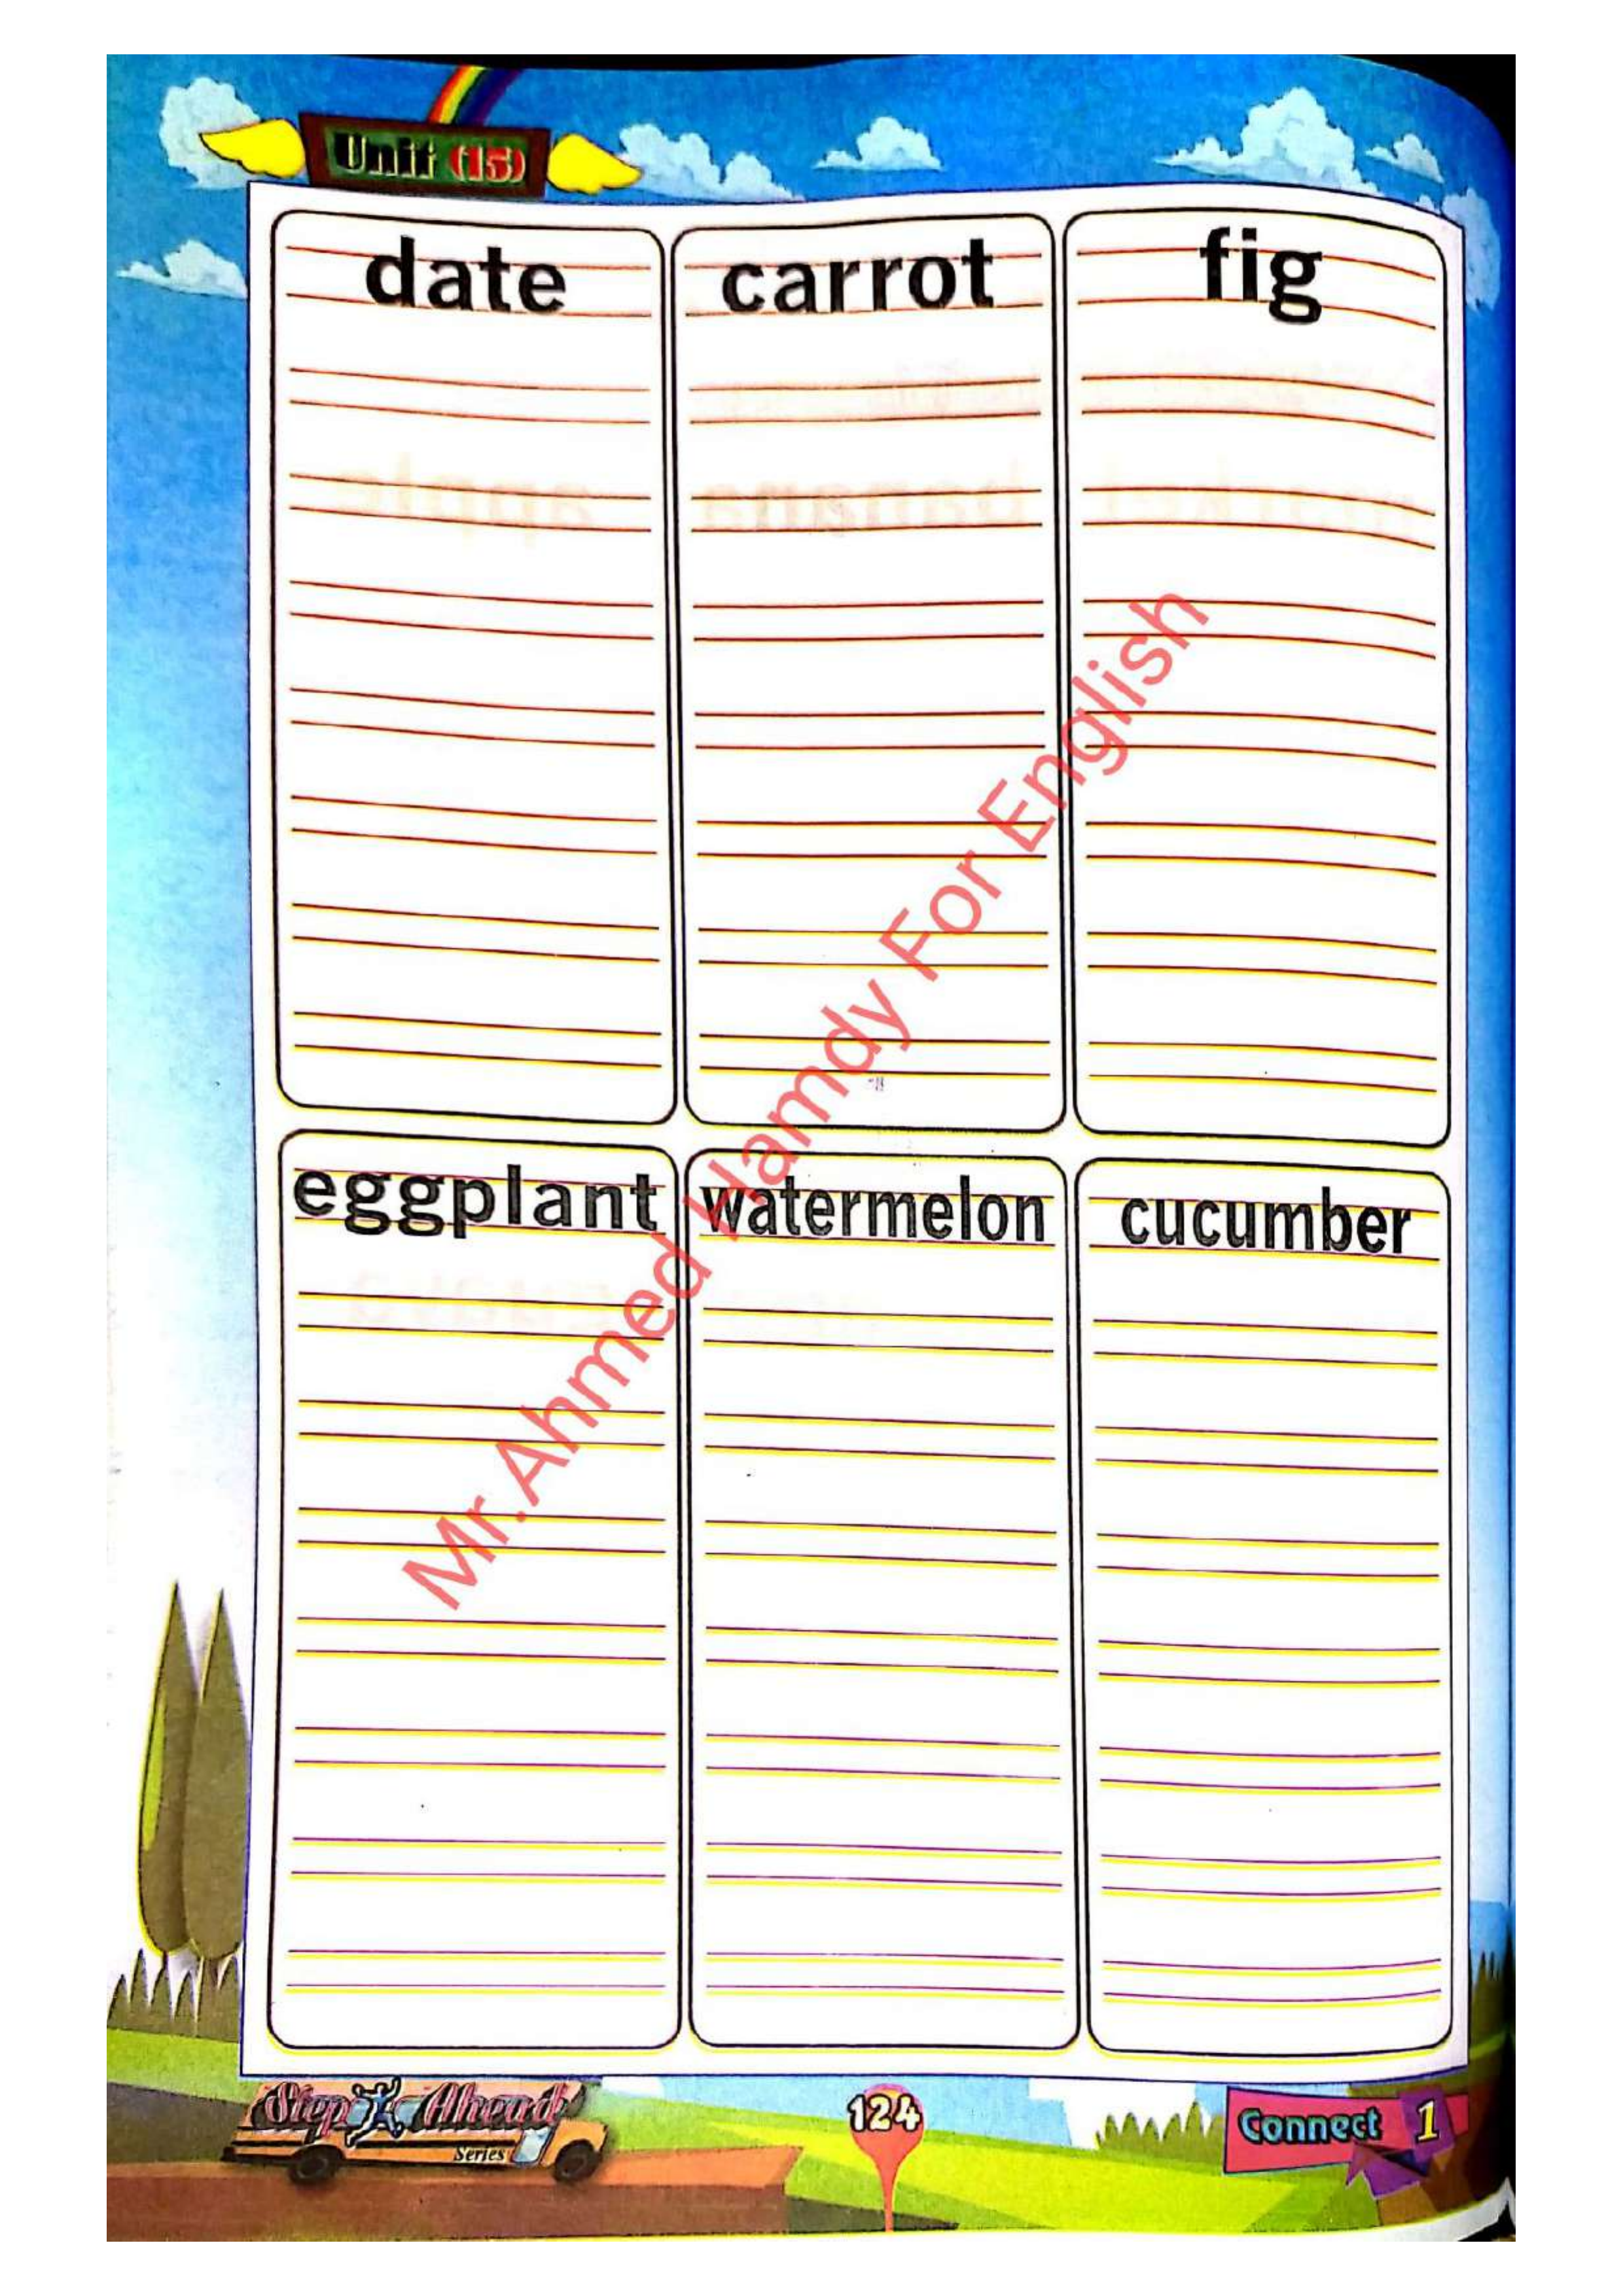 Unit (15)
date carrot fig
eggplant watermelon cucumber
Mr.Ahmed Hamdy For English
Step Ahead
Series
124
Connect 1